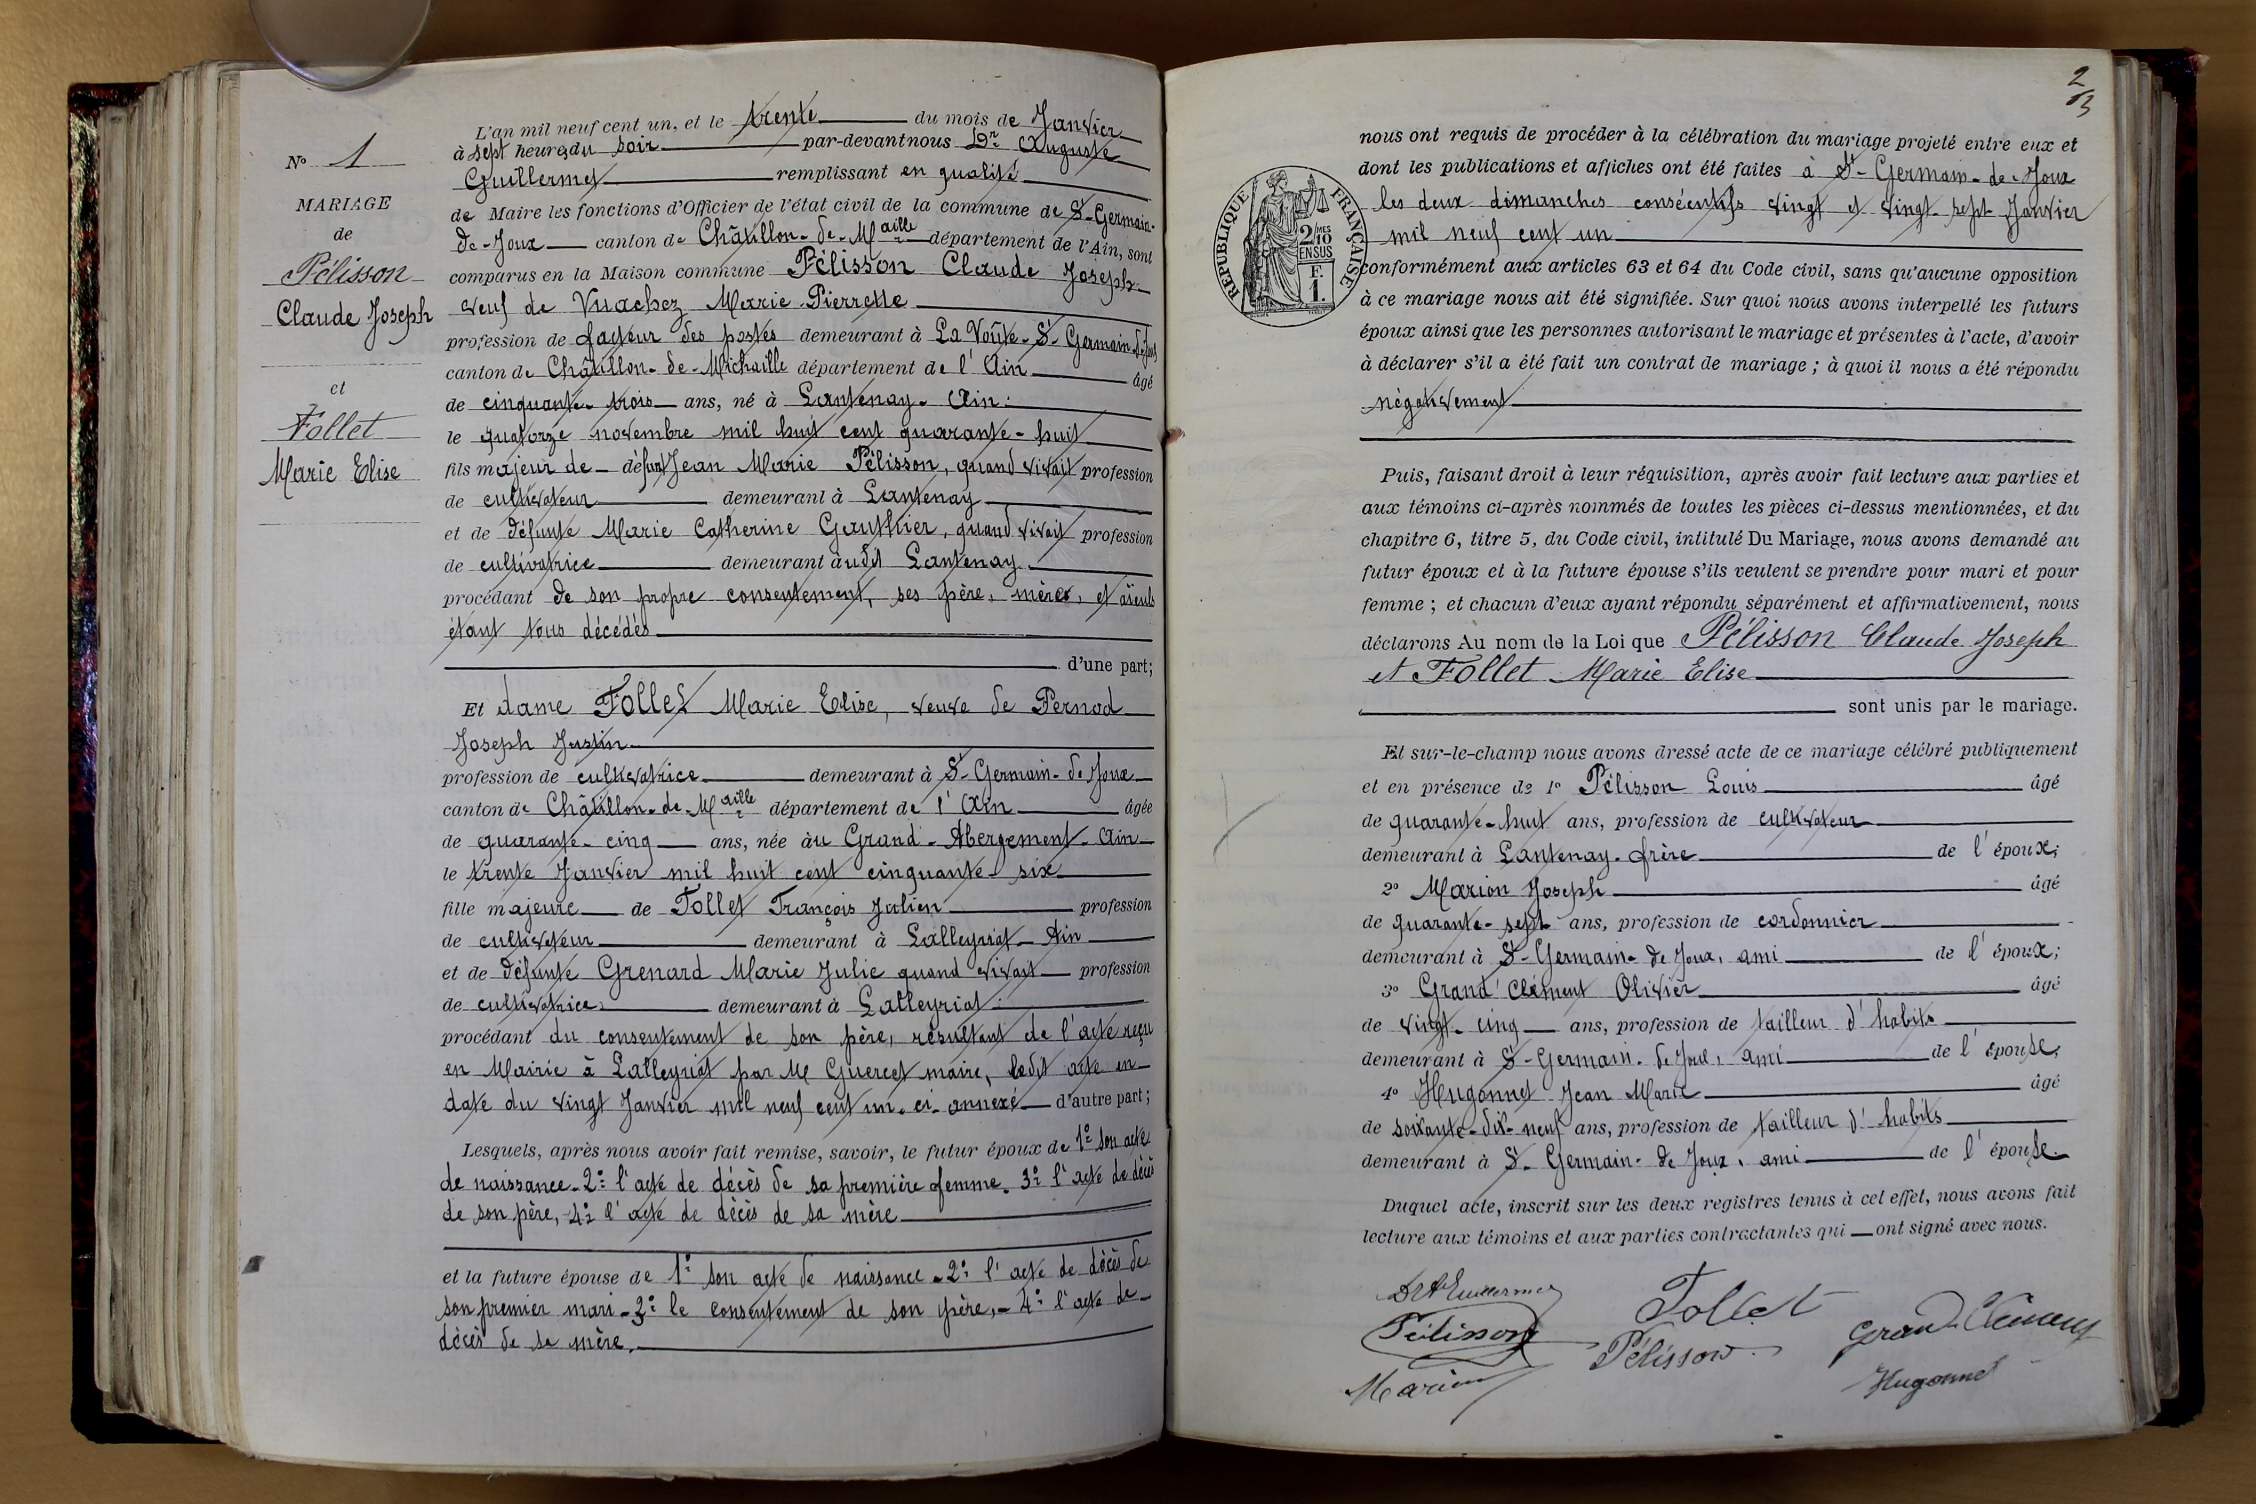 N° 1
MARIAGE
de
Pélisson
Claude Joseph
et
Follet
Marie Elise
L'an mil neuf cent un, et le trente du mois de Janvier
à sept heures du soir par-devant nous Dr Auguste
Guillermet remplissant en qualité
de Maire les fonctions d'Officier de l'état civil de la commune de St-Germain-
de-Joux canton de Châtillon-de-Maille département de l'Ain, sont
comparus en la Maison commune Pélisson Claude Joseph
veuf de Vuachez Marie Pierrette
profession de facteur des postes demeurant à La Voûte-St-Germain-d-Joux
canton de Châtillon-de-Michaille département de l'Ain âgé
de cinquante-trois ans, né à Lantenay-Ain
le quatorze novembre mil huit cent quarante-huit
fils majeur de défunt Jean Marie Pélisson, quand vivait profession
de cultivateur demeurant à Lantenay
et de défunte Marie Catherine Gauthier, quand vivait profession
de cultivatrice demeurant audit Lantenay
procédant de son propre consentement, ses père, mère, et aïeuls
étant tous décédés
d'une part;
Et dame Follet Marie Elise, veuve de Pernod
Joseph Justin
profession de cultivatrice demeurant à St-Germain-de-Joux
canton de Châtillon-de-Maille département de l'Ain âgée
de quarante-cinq ans, née au Grand-Abergement-Ain
le trente Janvier mil huit cent cinquante-six
fille majeure de Follet François Julien profession
de cultivateur demeurant à Lalleyriat-Ain
et de défunte Grenard Marie Julie quand vivait profession
de cultivatrice demeurant à Lalleyriat
procédant du consentement de son père, résultant de l'acte reçu
en Mairie à Lalleyriat par Me Guercet maire, ledit acte en
date du vingt Janvier mil neuf cent un, ci-annexé d'autre part;
Lesquels, après nous avoir fait remise, savoir, le futur époux de 1° son acte
de naissance-2° l'acte de décès de sa première femme. 3° l'acte de décès
de son père,-4° l'acte de décès de sa mère
et la future épouse de 1° son acte de naissance-2° l'acte de décès de
son premier mari-3° le consentement de son père,-4° l'acte de
décès de sa mère.
2/3
RÉPUBLIQUE FRANÇAISE
2 MES
10
EN SUS
F.
1.
nous ont requis de procéder à la célébration du mariage projeté entre eux et
dont les publications et affiches ont été faites à St-Germain-de-Joux
les deux dimanches consécutifs vingt et vingt-sept Janvier
mil neuf cent un
conformément aux articles 63 et 64 du Code civil, sans qu'aucune opposition
à ce mariage nous ait été signifiée. Sur quoi nous avons interpellé les futurs
époux ainsi que les personnes autorisant le mariage et présentes à l'acte, d'avoir
à déclarer s'il a été fait un contrat de mariage ; à quoi il nous a été répondu
négativement
Puis, faisant droit à leur réquisition, après avoir fait lecture aux parties et
aux témoins ci-après nommés de toutes les pièces ci-dessus mentionnées, et du
chapitre 6, titre 5, du Code civil, intitulé Du Mariage, nous avons demandé au
futur époux et à la future épouse s'ils veulent se prendre pour mari et pour
femme ; et chacun d'eux ayant répondu séparément et affirmativement, nous
déclarons Au nom de la Loi que Pélisson Claude Joseph
et Follet Marie Elise
sont unis par le mariage.
Et sur-le-champ nous avons dressé acte de ce mariage célébré publiquement
et en présence de 1° Pélisson Louis âgé
de quarante-huit ans, profession de cultivateur
demeurant à Lantenay-frère de l'époux;
2° Marion Joseph âgé
de quarante-sept ans, profession de cordonnier
demeurant à St-Germain-de Joux, ami de l'époux;
3° Grand'Clément Olivier âgé
de vingt-cinq ans, profession de tailleur d'habits
demeurant à St-Germain-de Joux, ami de l'épouse;
4° Hugonnet Jean Marie âgé
de soixante-dix-neuf ans, profession de tailleur d'habits
demeurant à St-Germain-de Joux, ami de l'épouse.
Duquel acte, inscrit sur les deux registres tenus à cet effet, nous avons fait
lecture aux témoins et aux parties contractantes qui ont signé avec nous.
Dr A Guillermet
Follet
Pélisson
Grand'Clément
Pélisson
Marion
Hugonnet